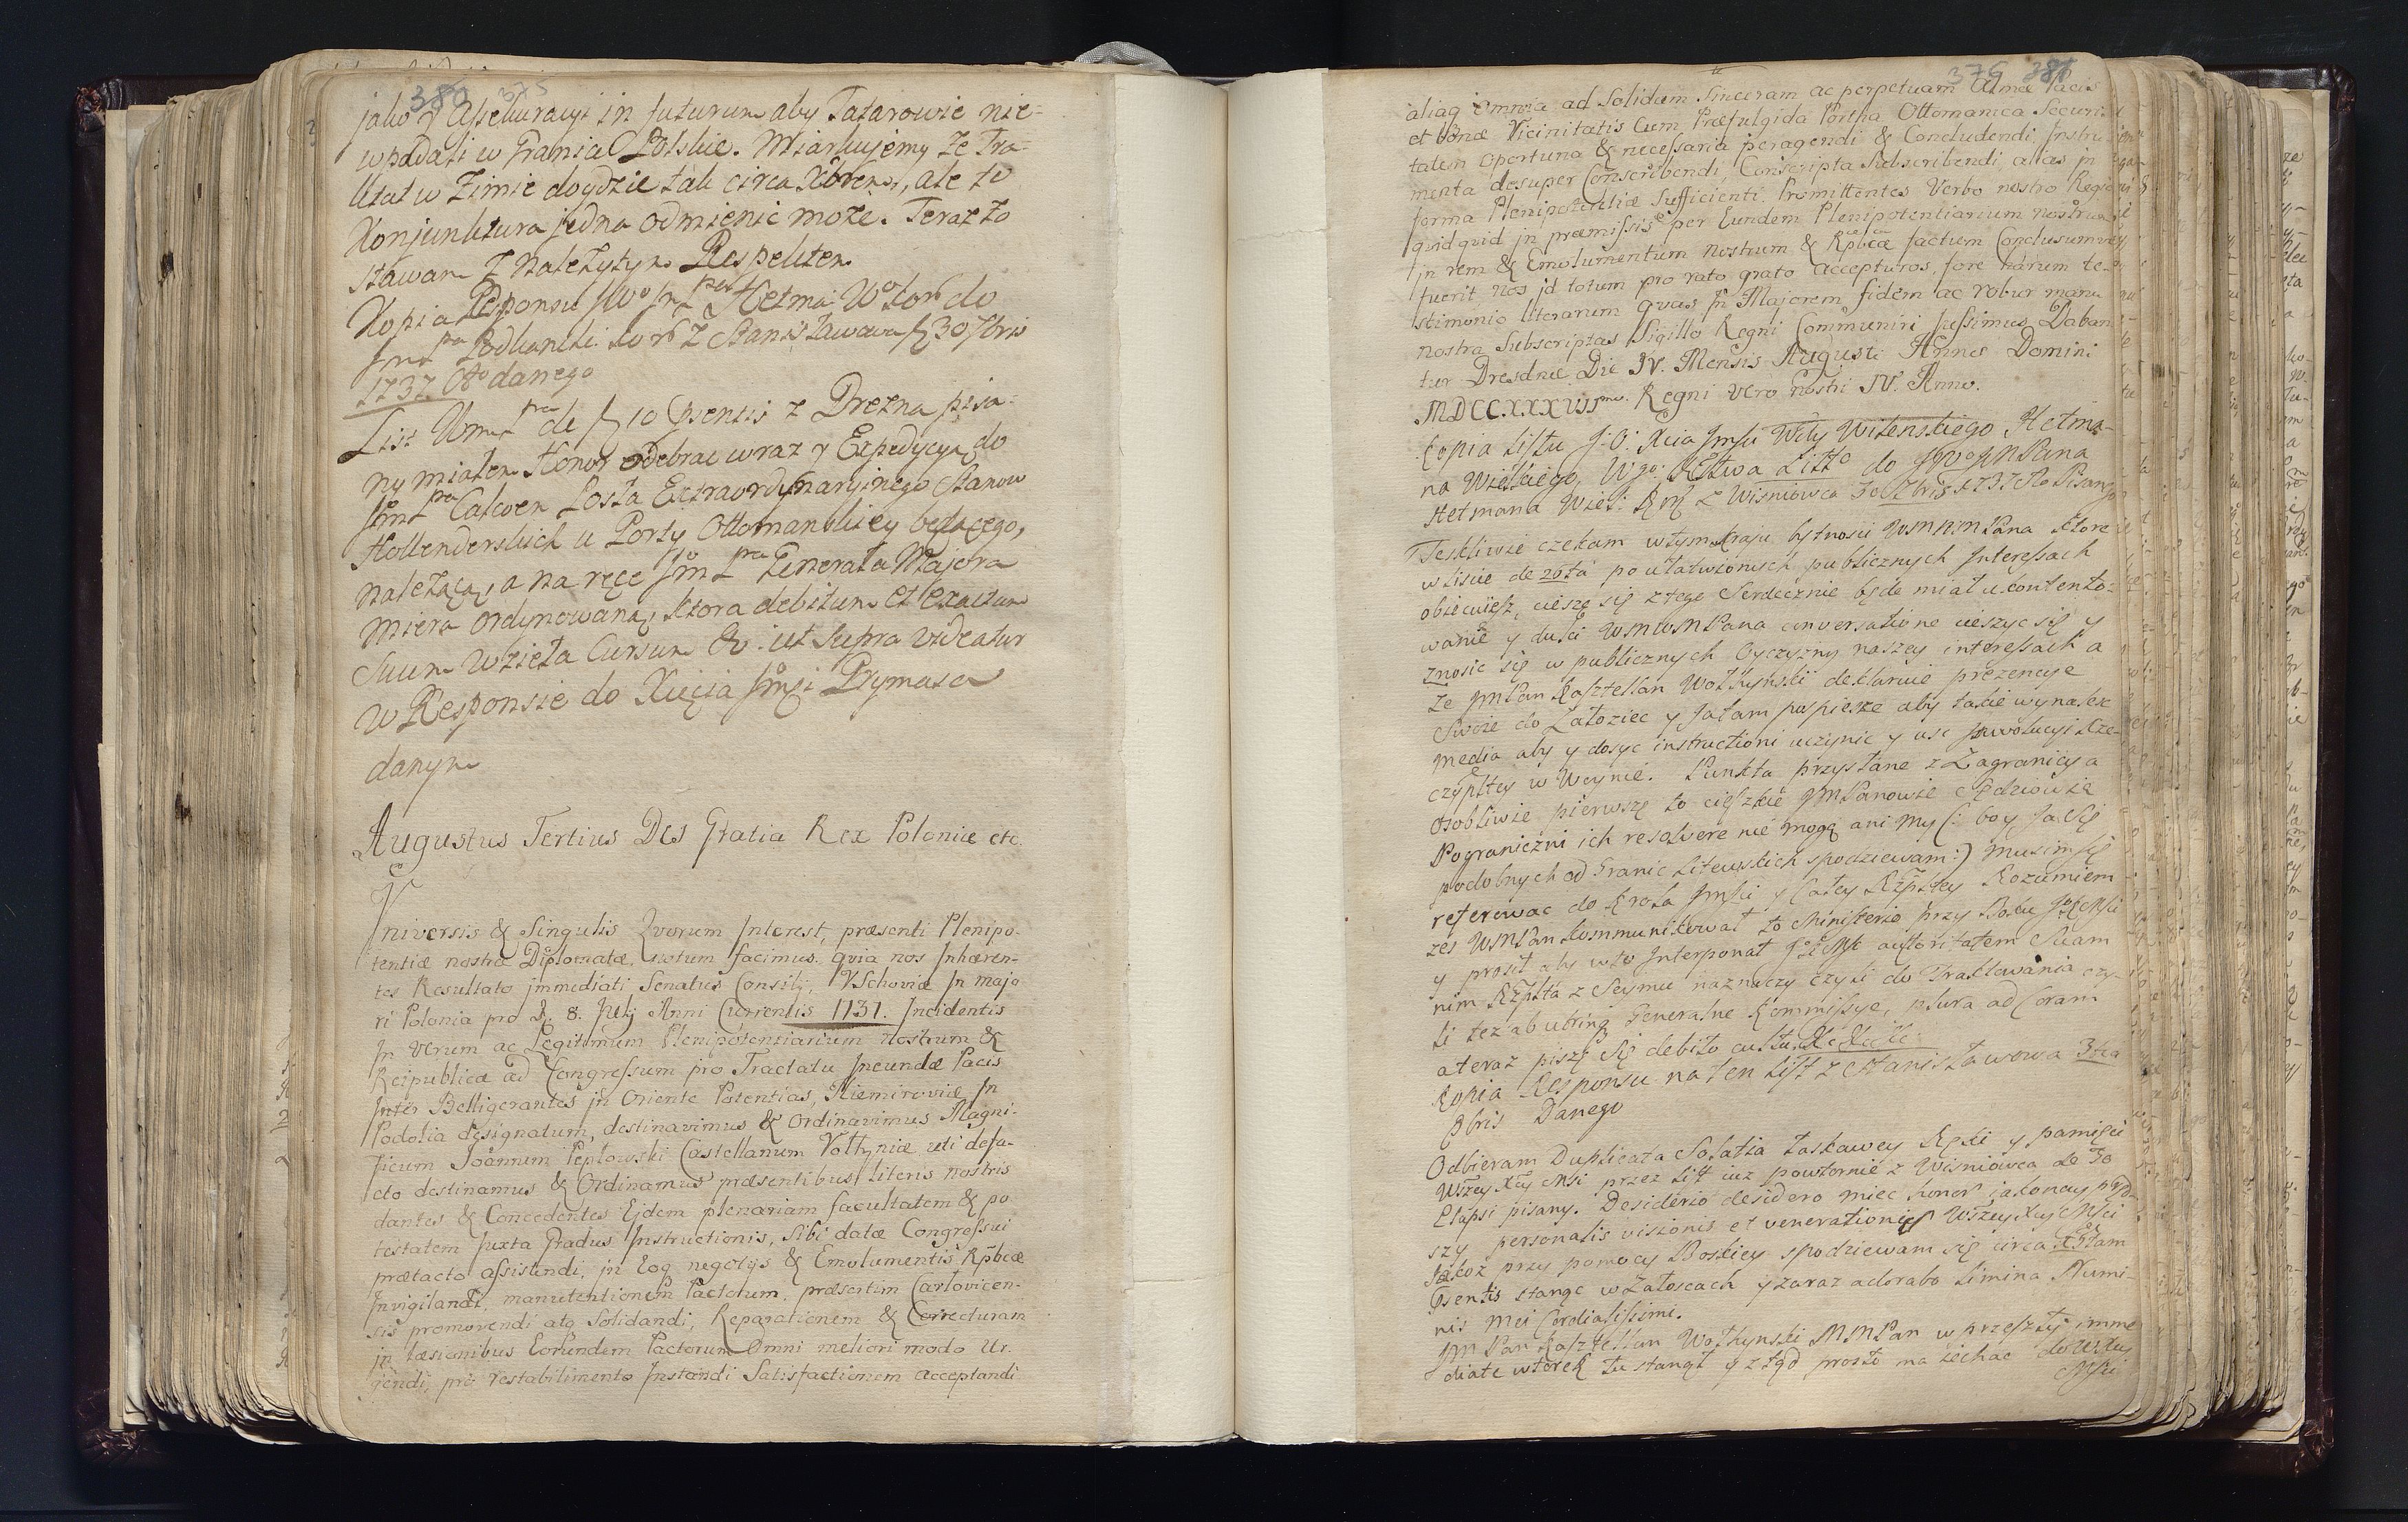 380 375
jako y Assekuracyi in futurum aby Tatarowie nie-
wpadali w Granice Polskie. Miarkujemy że Tra-
ktat w Zimie doydzie tak circa Xbrem, ale te
Konjunktura jedna odmienic może. Teraz zo
stawam z Należytym Respektem
Kopia Responsu JWo Jmć pna Hetma: Wo Kor do
Jmć pna Podkancle: Kor z Stanisławowa d. 30 7bris
1737. 08 danego
List Wmć pna de d 10 psentis z Drezna pisa-
ny miałem Honor odebrac wraz y Expedycyą do
Jmć pna Calcoen Posła Extraordynaryinego Stanow
Hollenderskich u Porty Ottomanskiey będącego,
należącą, a na ręce Jmć pna Generała Majora
Miera ordynowaną, ktora debitum et exactum
Suum wzieła Cursum &c. ut Supra videatur
w Responsie do Xięcia Jmći Prymasa
danym
Augustus Tertius Dei Gratia Rex Poloniæ etc.
Vniversis & Singulis Quorum Interest, præsenti Plenipo-
tentiæ nostræ Diplomate, notum facimus. quia nos Inhæren-
tes Resultato immediati Senatus Consilij, VSchoviæ In majo
ri Polonia pro d. 8. Julij Anni Currentis 1737. Incidentis
In Verum ac Legitimum Plenipotentiarium nostrum &
Reipublicæ ad Congressum pro Tractatu Ineundæ Pacis
Inter Belligerantes in Oriente Potentias, Niemiroviæ In
Podolia designatum, destinavimus & ordinavimus Magni-
ficum Joannem Peplowski Castellanum Volhyniæ, uti defa-
cto destinamus & Ordinamus præsentibus literis nostris
dantes & Concedentes Ejdem plenariam facultatem & po
testatem Juxta Gradus Instructionis, Sibi datæ Congressui
prætacto assistendi, in Eoq negotys & Emolumentis Rpbcæ
Invigilandi, manutentionem Pactorum, præsertim Carlovicen-
sis promovendi atq Solidandi, Reparationem & Correcturam
in læsionibus Eorundem Pactorum Omni meliori modo Ur-
gendi, pro restabilimento Instandi Satisfactionem acceptandi
376 381
aliaq Omnia ad Solidam Sinceram ac perpetuam Almæ Pacis
et bonæ Vicinitatis Cum Præfulgida Portha Ottomanica Securi
tatem oportuna & necessaria peragendi & Concludendi, Instru
menta desuper Conscribendi, Conscripta Subscribendi, alias in
forma Plenipotentiæ Sufficienti. Promittentes Verbo nostro Regio
quidquid in præmissis per Eundem Plenipotentiarium nostrum
in rem & Emolumentum nostrum & Rpbcæ factum Conclusumve
fuerit nos id totum pro rato grato accepturos, fore harum te-
stimonio literarum quas In Majorem fidem ac robur manu
nostra Subscriptas Sigillo Regni Communiri Jussimus. Daban
tur Dresdæ Die IV. Mensis Augusti Anno Domini
MDCCXXXVII. Regni Vero Nostri IV. Anno.
Kopia Listu J: O: Xcia Jmsci Wdy Wilenskiego Hetma-
na Wielkiego, Wgo: XLitwa Litto do JWo JMPana
Hetmana Wiel: Kor z Wisniowca 30 7bris 1737 Ro Pisany
Teskliwie czekam wtym kraju bytnosci WMMMPana ktore
w liscie de 26ta po ułatwionych publicznych Interessach
obiecuiesz, cieszę się z tego Serdecznie będe miał ukontento-
wanie y duści WMWMPana conversatione cieszyc się y
znosic się w publicznych Oyczyzny naszey interessach a
że JMPan Kasztellan Wołhynski deklaruie prezencye
Swoie do Załoziec y Ja tam pospieszę aby takie wynalesc
media aby y dosyc instructioni uczynic y
czypltey w Woynie. Punkta przysłane z Zagranicy a
osobliwie pierwszę to cięszkie JMPanowie Sędziowie
Pograniczni ich resolvere nie mogą ani My (: bo y Ja się
podobnych od Granic Litewskich spodziewam:) musim się
referowac do Krola Jmsci y Całey Rzpltey Rozumiem
zes WMPan kommunikował to Ministerio przy Boku
y prosił aby w to Interponat JKMsc autoritatem Suam
nim Rzplta z Seymu naznaczy czyli do Traktowania czy-
li tez ab utrinq Generalne Kommissye, plura ad Coram
a teraz piszę się debito cultu
Kopia Responsu na ten List z Stanisławowa 3tia
8bris Danego
Odbieram Duplicata Solatia łaskawey Ręki y pamięci
Wszey Xcy Msci przez List iuz powtornie z Wisniowca de 30
Elapsi pisany. Desiderio desidero miec honor iakonay pręd-
szy personalis visionis et venerationis Wszey Xcy Msci
Jakoz przy pomocy Boskiey spodziewam się circa
psentis stanąc w Załoscach y zaraz adorabo Limina Numi-
nis Mei Cordialissimi.
JMPan Kasztellan Wołhynski MMPan w przeszły imme
diate wtorek tu stanął y ztąd prosto ma iechac do WXcy
Msci